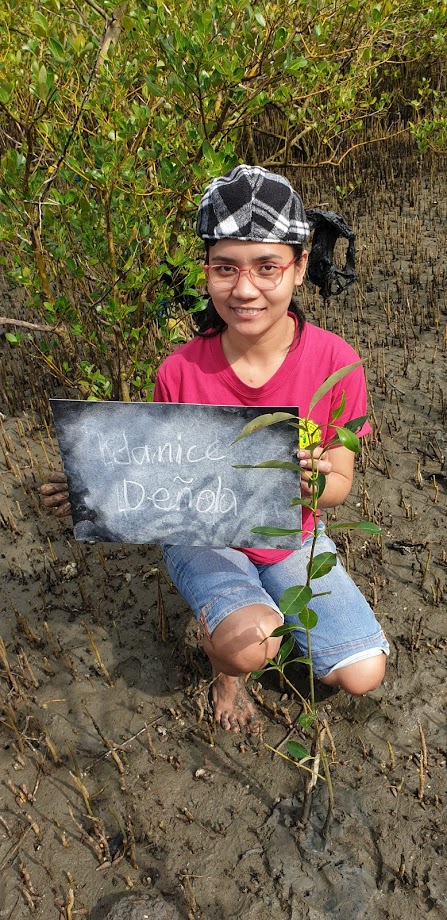 Janice
Deñola